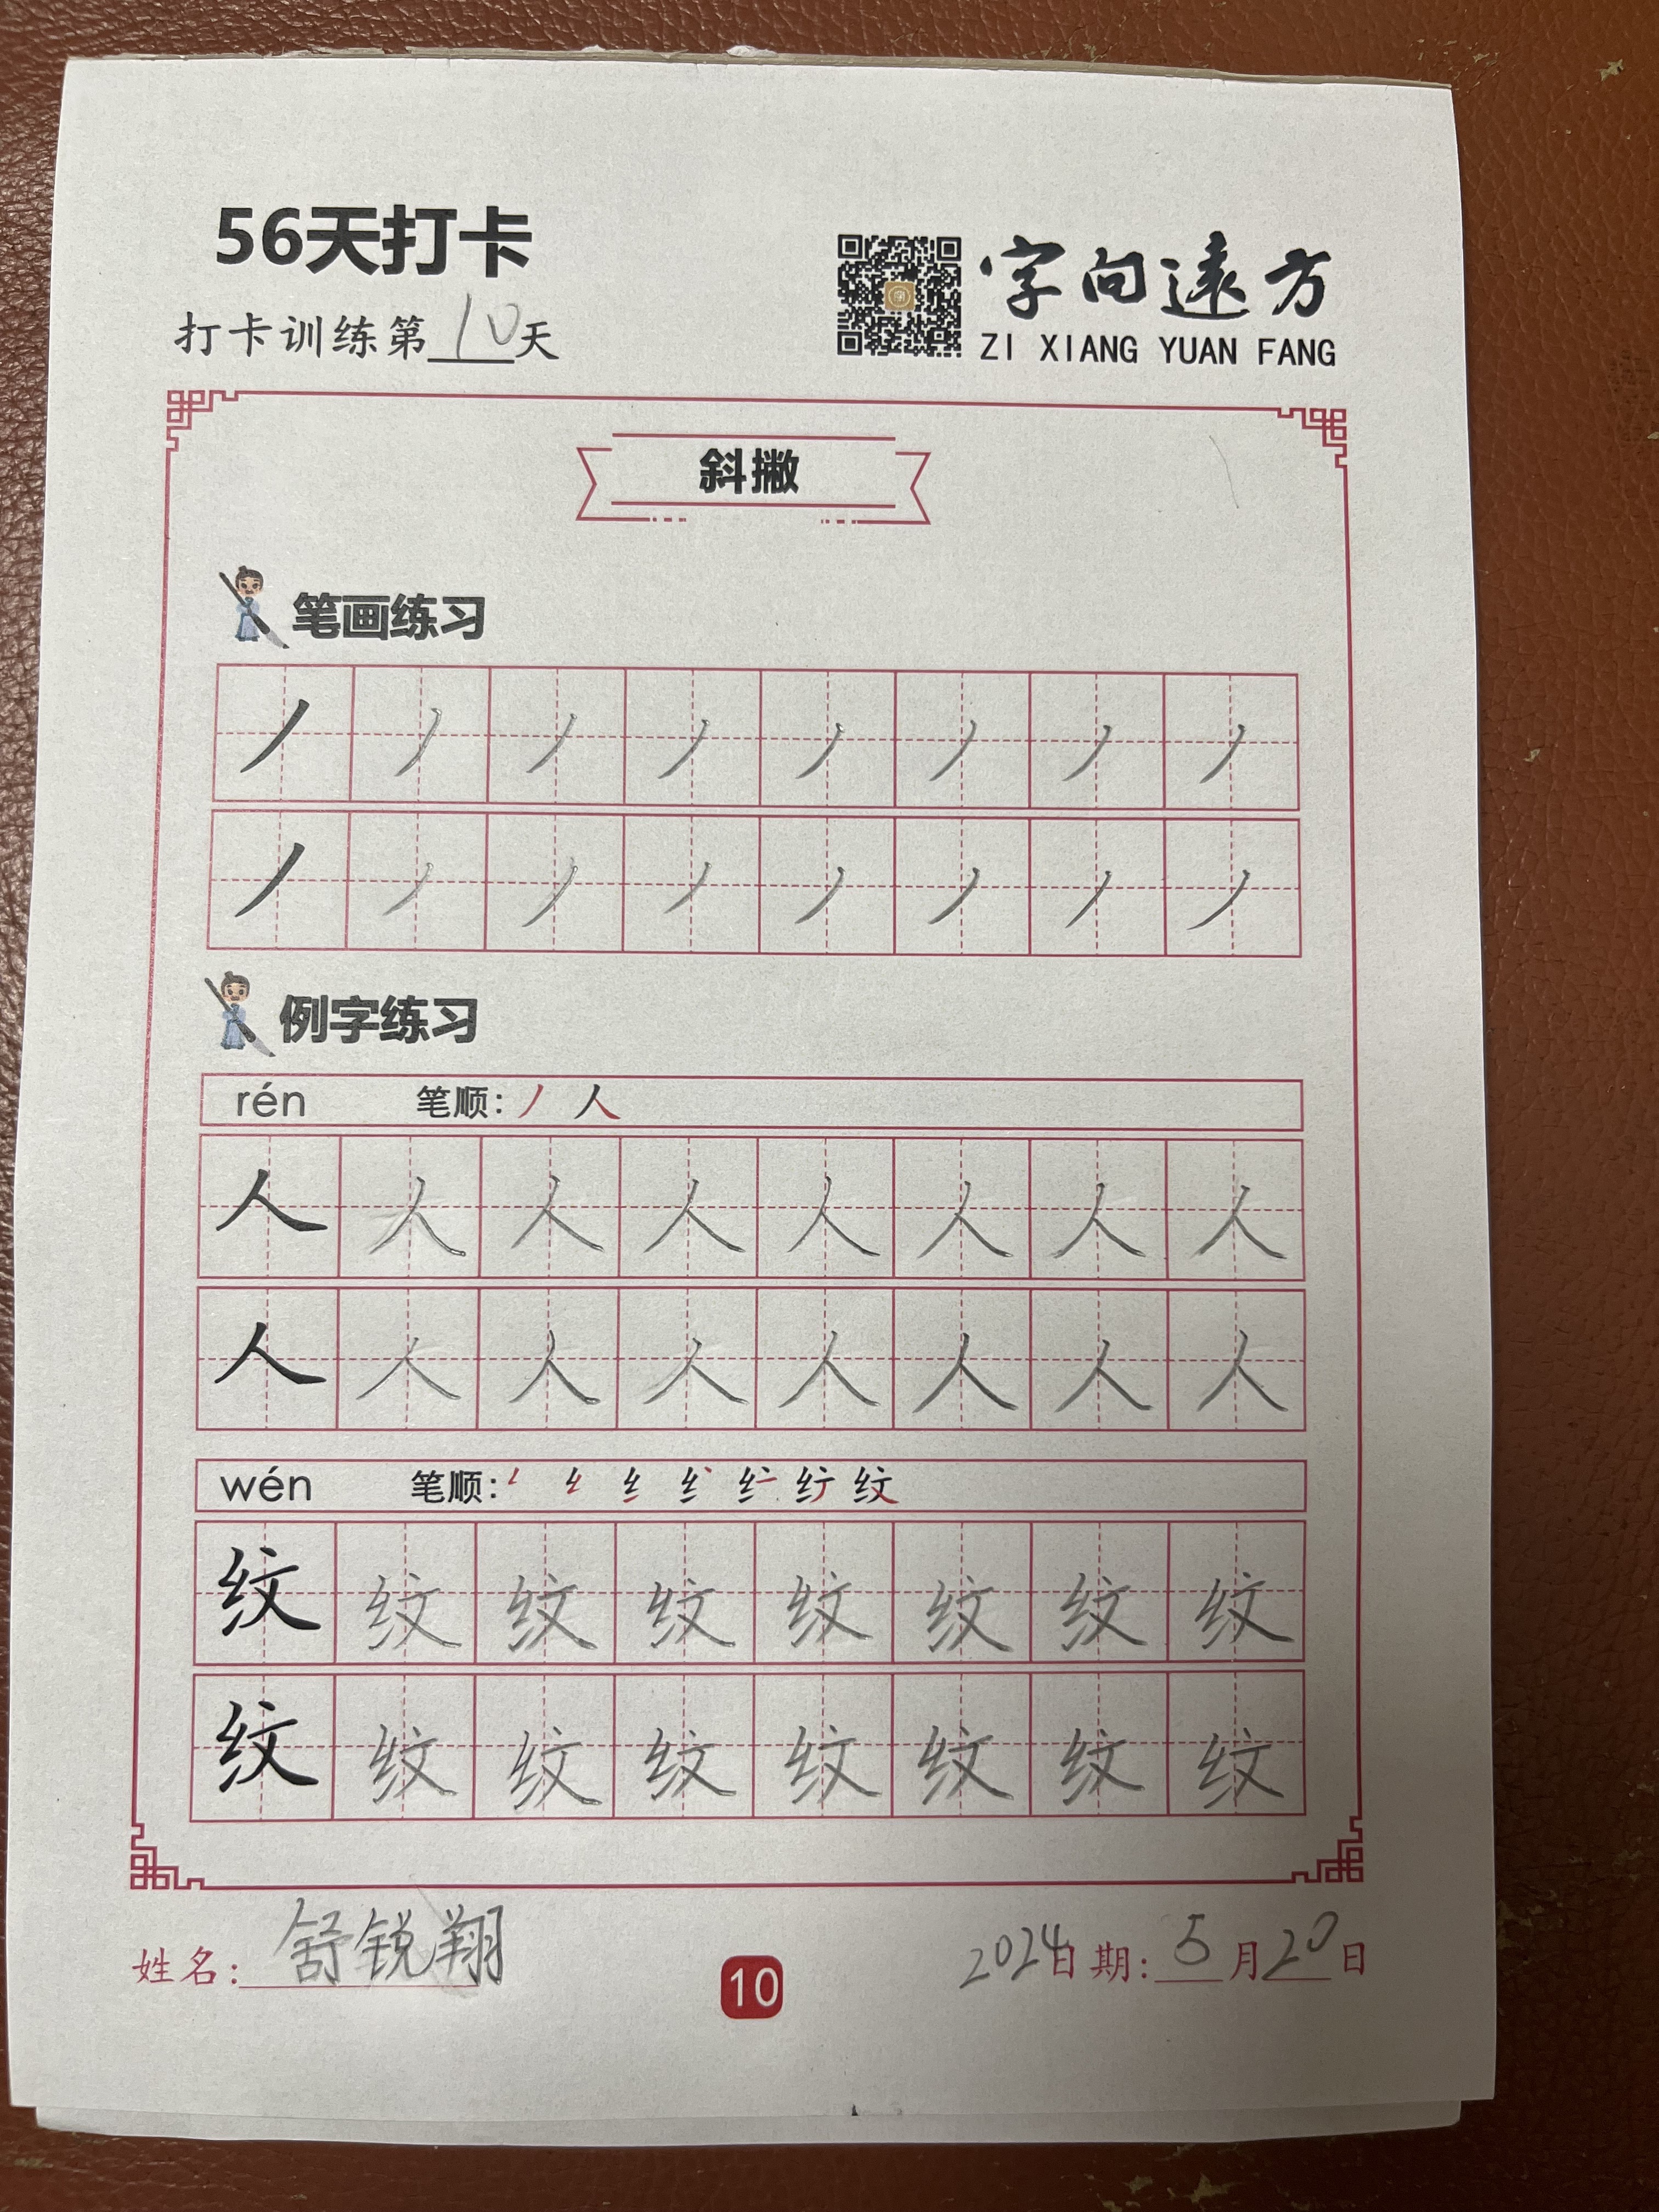 56天打卡
打卡训练第10天
字向遠方
ZI XIANG YUAN FANG
斜撇
笔画练习
丿 丿 丿 丿 丿 丿 丿 丿
丿 丿 丿 丿 丿 丿 丿 丿
例字练习
rén 笔顺: 丿 人
人 人 人 人 人 人 人 人
人 人 人 人 人 人 人 人
wén 笔顺: 纹
纹 纹 纹 纹 纹 纹 纹 纹
纹 纹 纹 纹 纹 纹 纹 纹
姓名: 舒锐翔
10
2024日期: 5月20日